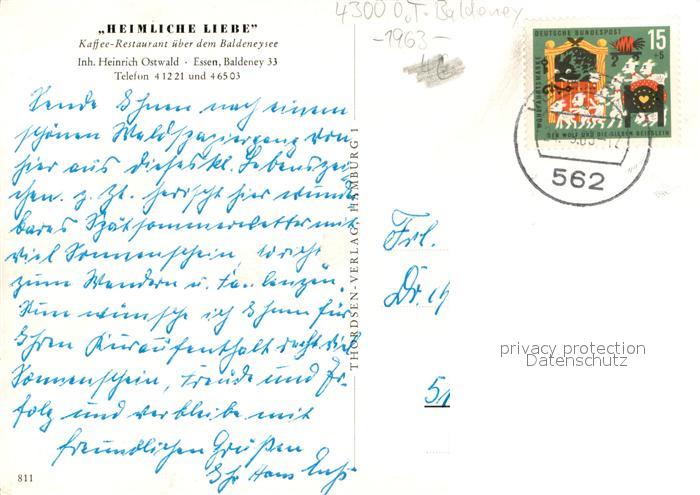 „HEIMLICHE LIEBE"
Kaffee-Restaurant über dem Baldeneysee
Inh. Heinrich Ostwald · Essen, Baldeney 33
Telefon 4 12 21 und 4 65 03
4300 O.T. Baldeney
-1963-
DEUTSCHE BUNDESPOST
15
+5
WOHLFAHRTSMARKE
DER WOLF UND DIE SIEBEN GEISSLEIN
562
Sende Ihnen nach einem
schönen Waldspaziergang von
hier aus dieses kl. Lebenszei-
chen. z. Zt. herrscht hier wunder
bares Spätsommerwetter mit
viel Sonnenschein, so recht
zum Wandern u. faulenzen.
Nun wünsche ich Ihnen für
Ihren Kuraufenthalt recht viel
Sonnenschein, Freude und Er-
folg und verbleibe mit
freundlichen Grüßen
Ihr Hans
Frl.
Dr.
THORDSEN-VERLAG · HAMBURG 1
privacy protection
Datenschutz
811